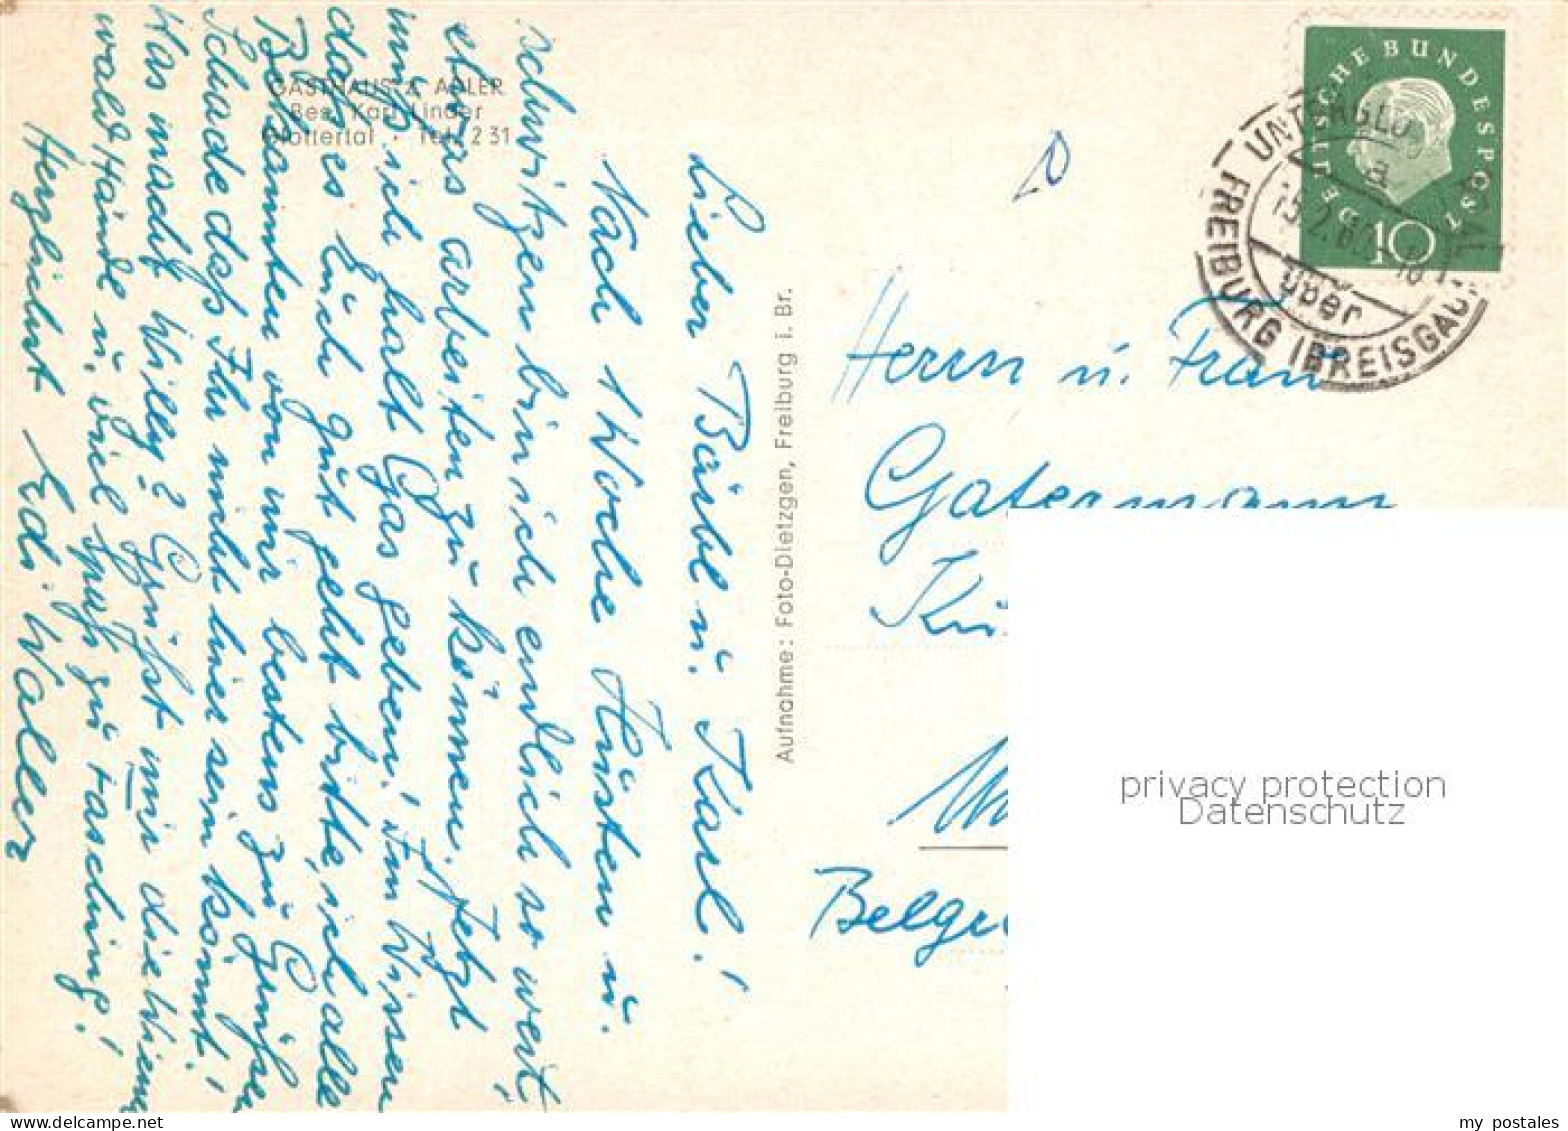 GASTHAUS Z. ADLER
Bes. Karl Linder
Glottertal · Tel. 2 31
Lieber Bärbl u. Karl!
Nach 1 Woche Husten u.
schwitzen bin ich endlich so weit,
etwas arbeiten zu können. Jetzt
muß ich halt Gas geben! Im Wissen
daß es Euch gut geht bitte, ich alle
Bekannten von mir bestens zu Grüßen
Schade daß Ihr nicht hier sein könnt!
Was macht Willy? Grüßt mir die Wiener
wald, Hände u. viel Spaß zu Fasching!
Herzlichst Edi Waller
Aufnahme: Foto-Dietzgen, Freiburg i. Br.
DEUTSCHE BUNDESPOST
10
UNTERGLOTTERTAL
a
15.2.60
über
FREIBURG (BREISGAU)
Herrn u. Frau
Gatermann
Belgi
privacy protection
Datenschutz
my postales